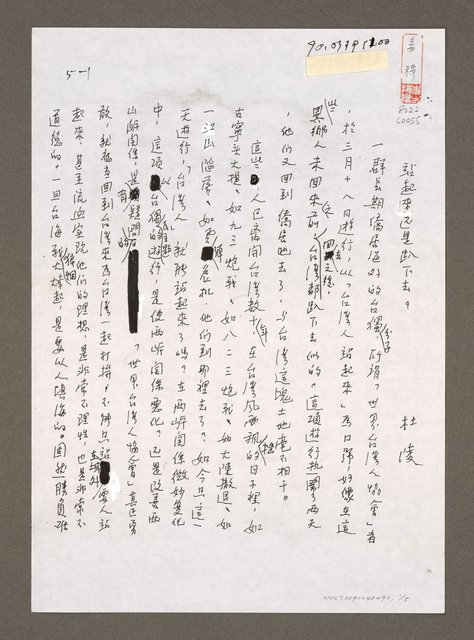 90.03.19.15:00
姜瑋
8022
C0055
5-1
站起來還是趴下去?
杜凌
一群長期僑居海外的台獨份子所謂「世界台灣人協會」者
,於三月十八日遊行,以「台灣人站起來」為口號,好像在這
些異鄉人未回來以前,台灣都趴下去似的。這項遊行執鬧兩天
,他們又回到僑居地去了,與台灣這塊土地毫不相干。
這些人已離開台灣數十年,在台灣風雨飄搖的日子裡,如
古寧頭大捷、如九三炮戰、如八二三炮戰、如大陳撤退、如
一江山陷落、如危機,他們到那裡去了?如今只這一
天遊行,「台灣人」就能站起來了嗎?在兩岸關係微妙變化
中,這項以台獨為主題的遊行,是使兩岸關係惡化?還是改善兩
岸關係,是有疑問的。「世界台灣人協會」真正勇
敢,就應當回到台灣來為台灣一起打拚。不能只站在場外要人站
起來,甚至流血實現他們的理想,是非常不理性,也是非常不
道德的。一旦台海戰火燃起,是要以人填海的。固然勝負難
NMTL20090240492, 1/5